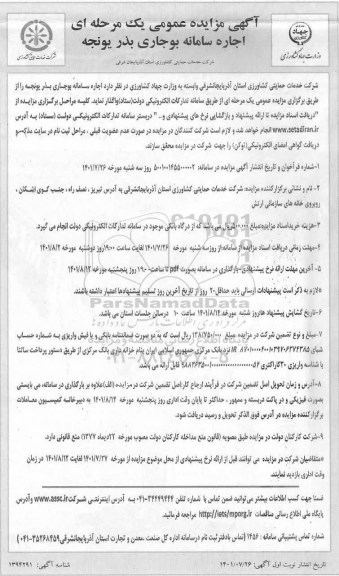 آگهی مزایده عمومی یک مرحله ای
اجاره سامانه بوجاری بذر یونجه
شرکت خدمات حمایتی کشاورزی استان آذربایجان شرقی
وزارت جهاد کشاورزی
شرکت خدمات حمایتی کشاورزی استان آذربایجانشرقی وابسته به وزارت جهاد کشاورزی در نظر دارد اجاره سامانه بوجاری بذر یونجه را از
طریق برگزاری مزایده عمومی یک مرحله ای از طریق سامانه تدارکات الکترونیکی دولت(ستاد)واگذار نماید. کلیه مراحل برگزاری مزایده از
"دریافت اسناد مزایده تا ارائه پیشنهاد و بازگشایی نرخ های پیشنهادی و.. " دربستر سامانه تدارکات الکترونیکی دولت (ستاد) به آدرس
www.setadiran.ir انجام خواهد شد و لازم است شرکت کنندگان در مزایده در صورت عدم عضویت قبلی ، مراحل ثبت نام در سایت مذکور و
دریافت گواهی امضای الکترونیکی(توکن) را جهت شرکت در مزایده محقق سازند.
۱-شماره فراخوان و تاریخ انتشار آگهی مزایده در سامانه: روز سه شنبه مورخه ۱۴۰۱/۷/۲۶
۲- نام و نشانی برگزار کننده مزایده: شرکت خدمات حمایتی کشاورزی استان آذربایجانشرقی به آدرس تبریز ، نصف راه ، جنب کوی اتشکان ،
روبروی خانه های سازمانی ارتش
۳-هزینه خرید اسناد مزایده: ریال می باشد که از درگاه بانکی موجود در سامانه تدارکات الکترونیکی دولت انجام می گیرد.
۴-مهلت زمانی دریافت اسناد مزایده از سامانه: از روز سه شنبه مورخه ۱۴۰۱/۷/۲۶ لغایت ساعت ۱۹:۰۰ روز دوشنبه مورخه ۱۴۰۱/۸/۲
۵- آخرین مهلت ارائه نرخ پیشنهادی-بارگذاری در سامانه بصورت pdf تا ساعت ۱۹:۰۰ روز پنجشنبه مورخه ۱۴۰۱/۸/۱۲
*لازم به ذکر است پیشنهادات ارسالی باید حداقل ۲۰ روز از تاریخ آخرین روز تسلیم پیشنهادها اعتبار داشته باشند.
۶-تاریخ گشایش پیشنهاد ها: روز شنبه مورخه ۱۴۰۱/۸/۱۴ ساعت ۱۰ درسالن جلسات استان می باشد.
۷-مبلغ و نوع تضمین شرکت در مزایده مبلغ ریال است که به دو صورت ضمانتنامه بانکی و یا فیش واریزی به شماره حساب
شبای نزد بانک مرکزی جمهوری اسلامی ایران بنام خزانه داری بانک مرکزی از طریق دستور پرداخت ساتنا
با شناسه واریزی ۳۰ کاراکتری قابل ارائه می باشد.
۸-آدرس و زمان تحویل اصل تضمین شرکت در فرآیند ارجاع کار:اصل تضمین شرکت در مزایده (الف)علاوه بر بارگذاری در سامانه، می بایستی
بصورت فیزیکی و در پاکت دربسته و ممهور ، حداکثر تا پایان وقت اداری روز پنجشنبه مورخه ۱۴۰۱/۸/۱۲ به دبیرخانه کمیسیون معاملات
برگزار کننده مزایده در آدرس فوق الذکر تحویل و رسید دریافت شود.
۹-شرکت کارکنان دولت در مزایده طبق مصوبه (قانون منع مداخله کارکنان دولت مصوب مورخه ۲۲دیماه ۱۳۳۷) منع قانونی دارد.
*متقاضیان شرکت در مزایده می توانند قبل از ارائه نرخ پیشنهادی از محل موضوع مزایده از مورخه ۱۴۰۱/۷/۲۷ لغایت ۱۴۰۱/۸/۱۲ در زمان
وقت اداری بازدید نمایند.
ضمنا جهت کسب اطلاعات بیشتر می توانید ضمن تماس با شماره تلفن ۰۴۱-۳۴۴۴۹۴۴۴ به آدرس اینترنتی شرکت www.assc.ir و آدرس
پایگاه ملی اطلاع رسانی مناقصات http://iets/mporg.ir مراجعه فرمائید.
شماره تماس پشتیبانی سامانه: ۱۴۵۶ (تماس با دفتر ثبت نام درسامانه اداره کل صنعت ،معدن و تجارت استان آذربایجانشرقی ۳۵۲۶۸۴۵۹-۰۴۱)
تاریخ انتشار نوبت اول آگهی: ۱۴۰۱/۰۷/۲۶
شناسه آگهی: ۱۳۹۴۲۹۱